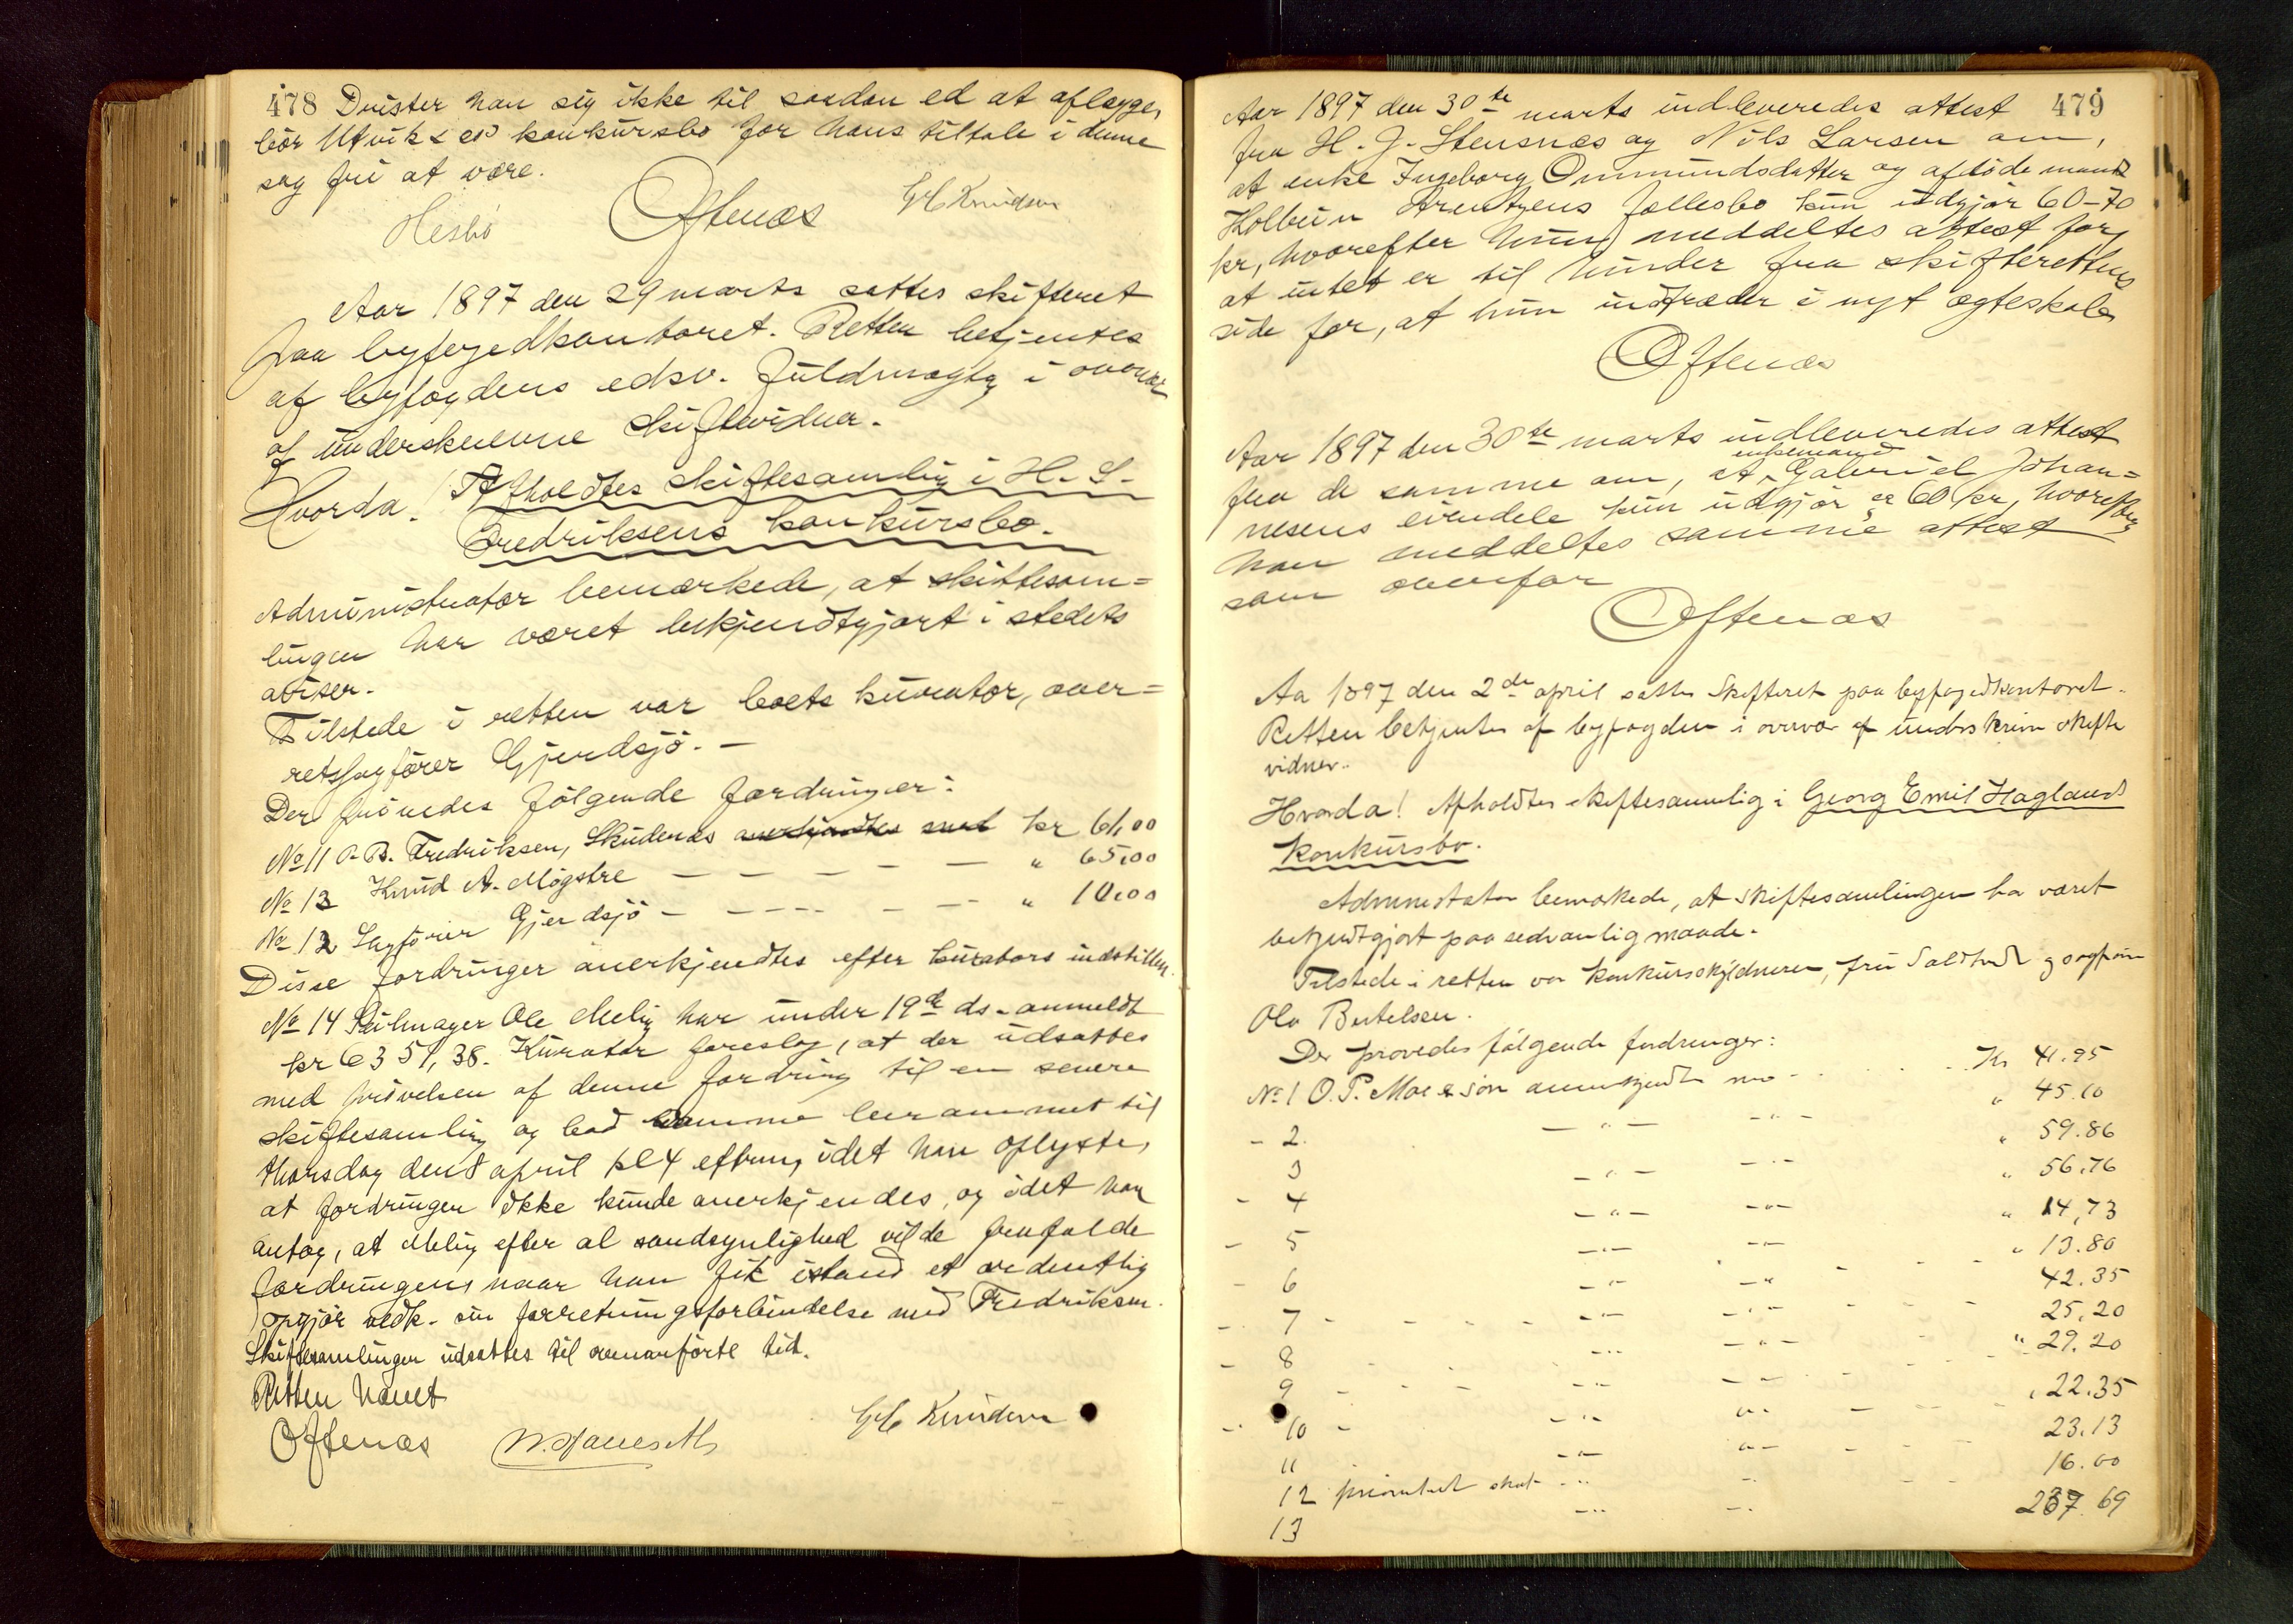 478 Drister han sig ikke til saadan ed at aflægge,
bør Utviks es konkursbo for hans tiltale i denne
sag fri at være.
Hesbö Oftenæs Knudsen
Aar 1897 den 29 marts sattes skifteret
paa byfogedkontoret. Retten betjentes
af byfogdens edsv. fuldmægtig i overvær
af underskrevne skiftevidner.
Hvorda! Afholdtes skiftesamling i H. S.
Fredriksens konkursbo.
Administrator bemærkede, at skiftesam=
lingen har været bekjendtgjort i stedets
aviser.
Tilstede i retten var boets kurator, over=
retssagfører Gjerdsjö. -
Der prövedes fölgende fordringer:
No 11 O. B. Fredriksen, Skudenæs anerkjendtes med kr 61,00
No 13 Knud A. Mögstre — — — — — " 65,00
No 12 Sagförer Gjerdsjö — — — — — " 10,00
Disse fordringer anerkjendtes efter kurators indstilling.
No 14 Seilmager Ole Meling har under 19de ds. anmeldt
kr 6351,38. Kurator foreslog, at der udsattes
med prövelsen af denne fordring til en senere
skiftesamling og bad samme berammet til
thorsdag den 8 april kl 4 efterm, idet han oplyste,
at fordringen ikke kunde anerkjendes, og idet han
antog, at Meling efter al sandsynlighed vilde frafalde
fordringen, naar han fik istand et ordentlig
opgjör vedk. sin forretningsforbindelse med Fredriksen.
Skiftesamlingen udsattes til ovenanförte tid.
Retten hævet
Oftenæs Knudsen
Aar 1897 den 30te marts indleveredes attest 479
fra H. J. Stensnæs og Nils Larsen om,
at enke Ingeborg Ommundsdatter og afdöde mand
Holbein Arentzens fællesbo kun udgjör 60-70
kr, hvorefter hun meddeltes attest for,
at intet er til hinder fra skifterettens
side for, at hun indtræder i nyt ægteskab
Oftenæs
Aar 1897 den 30te marts indleveredes attest
fra de samme om, at enkemand Gabriel Johan=
nesens eiendele kun udgjör ca 60 kr, hvorefter
han meddeltes samme attest
som ovenfor
Oftenæs
Aar 1897 den 2den april sattes Skifteret paa byfogedkontoret.
Retten betjentes af byfogden i overvær af underskrevne skifte
vidner.
Hvorda! Afholdtes skiftesamling i Georg Emil Haglands
konkursbo.
Administrator bemærkede, at skiftesamlingen har været
bekjendtgjort paa sedvanlig maade.
Tilstede i retten var konkursskyldneren, fru og sagförer
Ola Bertelsen.
Der prövedes fölgende fordringer:
No 1 O. P. Moe & Sön anerkjendt med . . . Kr 41.95
- 2. — " — — " — " 45.10
3 — " — — " — " 59.86
- 4 — " — — " — " 56.76
- 5 — " — — " — " 14,73
- 6 — " — — " — " 13.80
- 7 — " — — " — 42.35
- 8 — " — — " — 25,20
9 — " — — " — " 29.20
- 10 — " — — " — " 22.35
11 — " — — " — 23.13
12 prioritet skat — " — 16.00
13 — " — 237.69